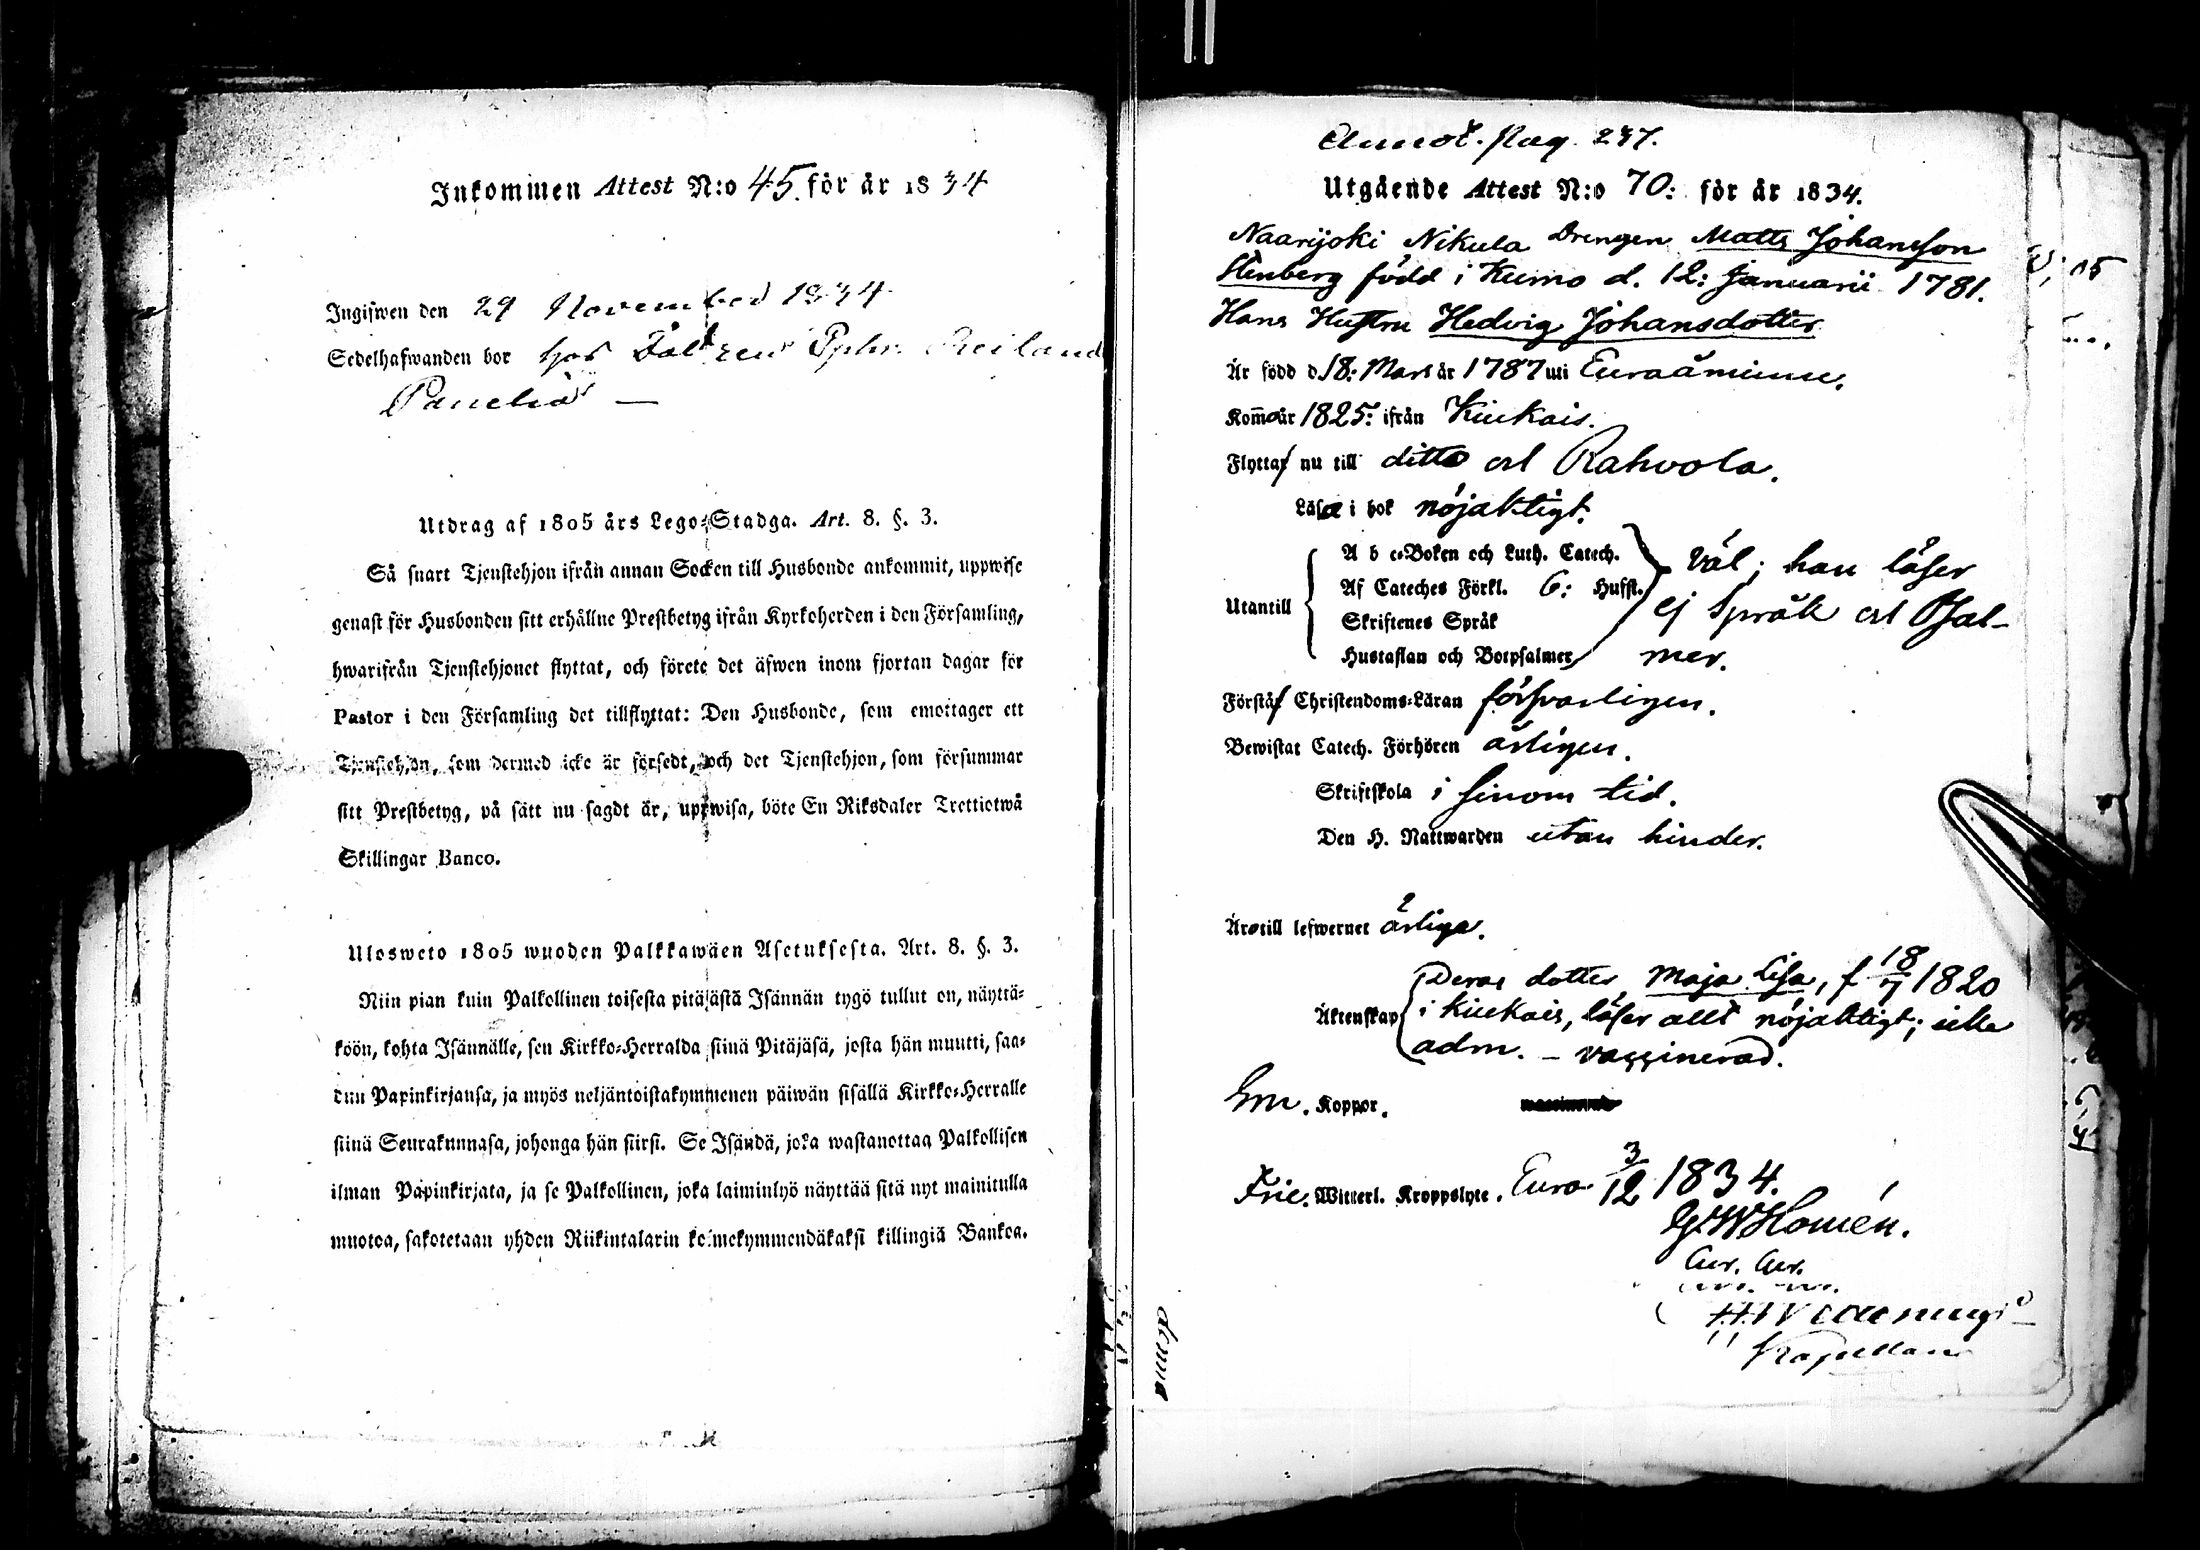 Inkommen Attest N:o 45. för år 1834
Ingifwen den 29 November 1834
Sedelhafwanden bor hos
Panelia —
Utdrag af 1805 års Lego-Stadga. Art. 8. §. 3.
Så snart Tjenstehjon ifrån annan Socken till Husbonde ankommit, uppwise
genast för Husbonden sitt erhållne Prestbetyg ifrån Kyrkoherden i den Församling,
hwarifrån Tjenstehjonet flyttat, och förete det äfwen inom fjortan dagar för
Pastor i den Församling det tillflyttat: Den Husbonde, som emottager ett
Tjenstehjon, som dermed icke är försedt, och det Tjenstehjon, som försummar
sitt Prestbetyg, på sätt nu sagdt är, uppwisa, böte En Riksdaler Trettiotwå
Skillingar Banco.
Ulosweto 1805 wuoden Palkkawäen Asetuksesta. Art. 8. §. 3.
Niin pian kuin Palkollinen toisesta pitäjästä Isännän tygö tullut on, näyttä-
köön, kohta Isännälle, sen Kirkko-Herralda siinä Pitäjäsä, josta hän muutti, saa-
dun Papinkirjansa, ja myös neljäntoistakymmenen päiwän sisällä Kirkko-Herralle
siinä Seurakunnasa, johonga hän siirsi. Se Isändä, joka wastanottaa Palkollisen
ilman Papinkirjata, ja se Palkollinen, joka laiminlyö näyttää sitä nyt mainitulla
muotoa, sakotetaan yhden Riikintalarin kolmekymmendäkaksi killingiä Bankoa.
Annot. Pag. 237.
Utgående Attest N:o 70: för år 1834.
Naarijoki Nikula Drengen Matts Johansson
Stenberg född i Kumo d. 12: Januarii 1781.
Hans Hustru Hedvig Johansdotter
Är född d 18: Mars år 1787 uti Euraåminne.
Kom̄o år 1825: ifrån Kiukais.
Flytta nu till ditto och Rahvola.
Läsa i bok nöjaktigt.
Utantill
A b c-Boken och Luth. Catech.
Af Cateches Förkl. 6: Hufst.
Skriftenes Språk
Hustaflan och Botpsalmer
väl; han läser
ej Språk och Psal-
mer.
Förstå Christendoms-Läran försvarligen.
Bewistat Catech. Förhören årligen.
Skriftskola i sinom tid.
Den H. Nattwarden utan hinder.
Äro till lefwernet ärliga.
Äktenskap
Deras dotter Maja Lisa, f 18/7 1820
i Kiukais, läser allt nöjaktigt; icke
adm. – vaccinerad.
Koppor.
Frie. Witterl. Kroppslyte. Eura 3/12 1834.
G W Homén.
Cur. Cur.
Kapellan